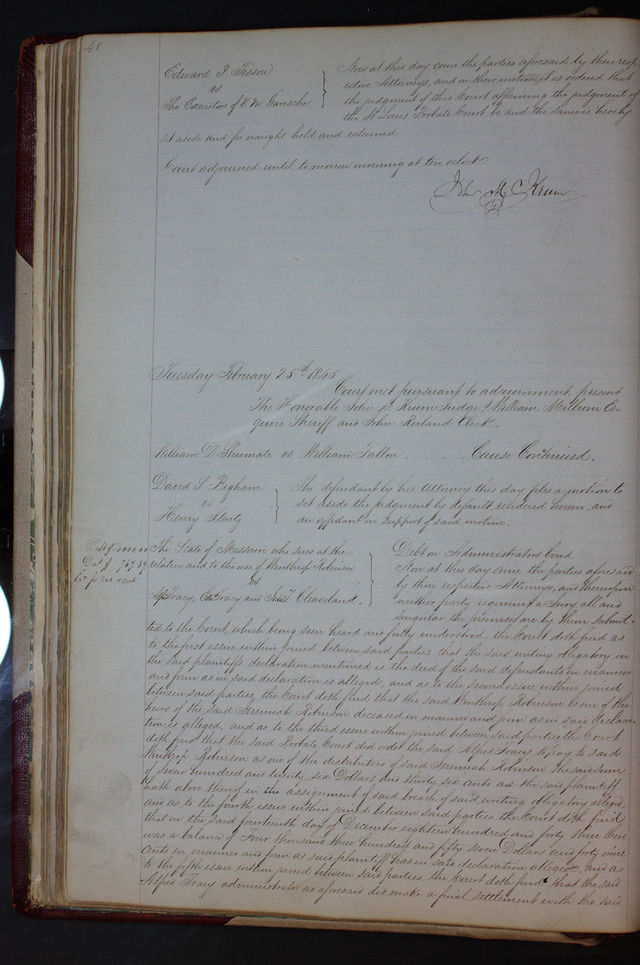 48
Edward F Tesson
vs
The Executors of
Now at this day come the parties aforesaid by their resp
ective Attorneys, and on their motion, it is ordered that
the judgment of this Court affirming the judgment of
the St Louis Probate Court be and the same is hereby
set aside and for naught held and esteemed
Court adjourned until to morrow morning at ten oclock
John M C Krum
Tuesday February 25th 1845
Court met pursuant to adjournment, present
The Honorable John M Krum Judge, William Milburn Es-
quire Sheriff and John Ruland Clerk.
William D Shumate vs William Fallon . . . . . Cause Continued.
David L Bigham
vs
Henry
The defendant by his Attorney this day files a motion to
set aside the judgment by default rendered herein, and
an affidavit in support of said motion.
The State of Missouri who sues at the
relation and to the use of Winthrop Robinson
vs
Tracy, Tracy and Cleaveland.
Debt on Administrators bond
Now at this day come the parties aforesaid
by their respective Attorneys, and thereupon
neither party requiring a Jury all and
singular the premises are by them submit-
ted to the Court, which being seen heard and fully understood, the Court doth find as
to the first issue within joined between said parties that the said writing obligatory in
the said plaintiffs declaration mentioned is the deed of the said defendants in manner
and form as in said declaration is alleged, and as to the second issue within joined
between said parties, the Court doth find, that the said Winthrop Robinson is one of the
heirs of the said Jeremiah Robinson deceased in manner and form as in said declara-
tion is alleged, and as to the third issue within joined between said parties the Court
doth find that the said Probate Court did order the said Alfred Tracy to pay to said
Winthrop Robinson as one of the distributees of said Jeremiah Robinson the said sum
of Seven hundred and twenty six Dollars and thirty six cents as the said plaintiff
hath above thereof in the assignment of said breach of said writing obligatory alleged,
and as to the fourth issue within joined between said parties the Court doth find
that on the said fourteenth day of December eighteen hundred and forty three there
was a balance of Four thousand three hundred and fifty seven Dollars and forty nine
cents in manner and form as said plaintiff has in said declaration alleged, and as
to the fifth issue within joined between said parties, the Court doth find that the said
Alfred Tracy administrator as aforesaid did make a final settlement with the said